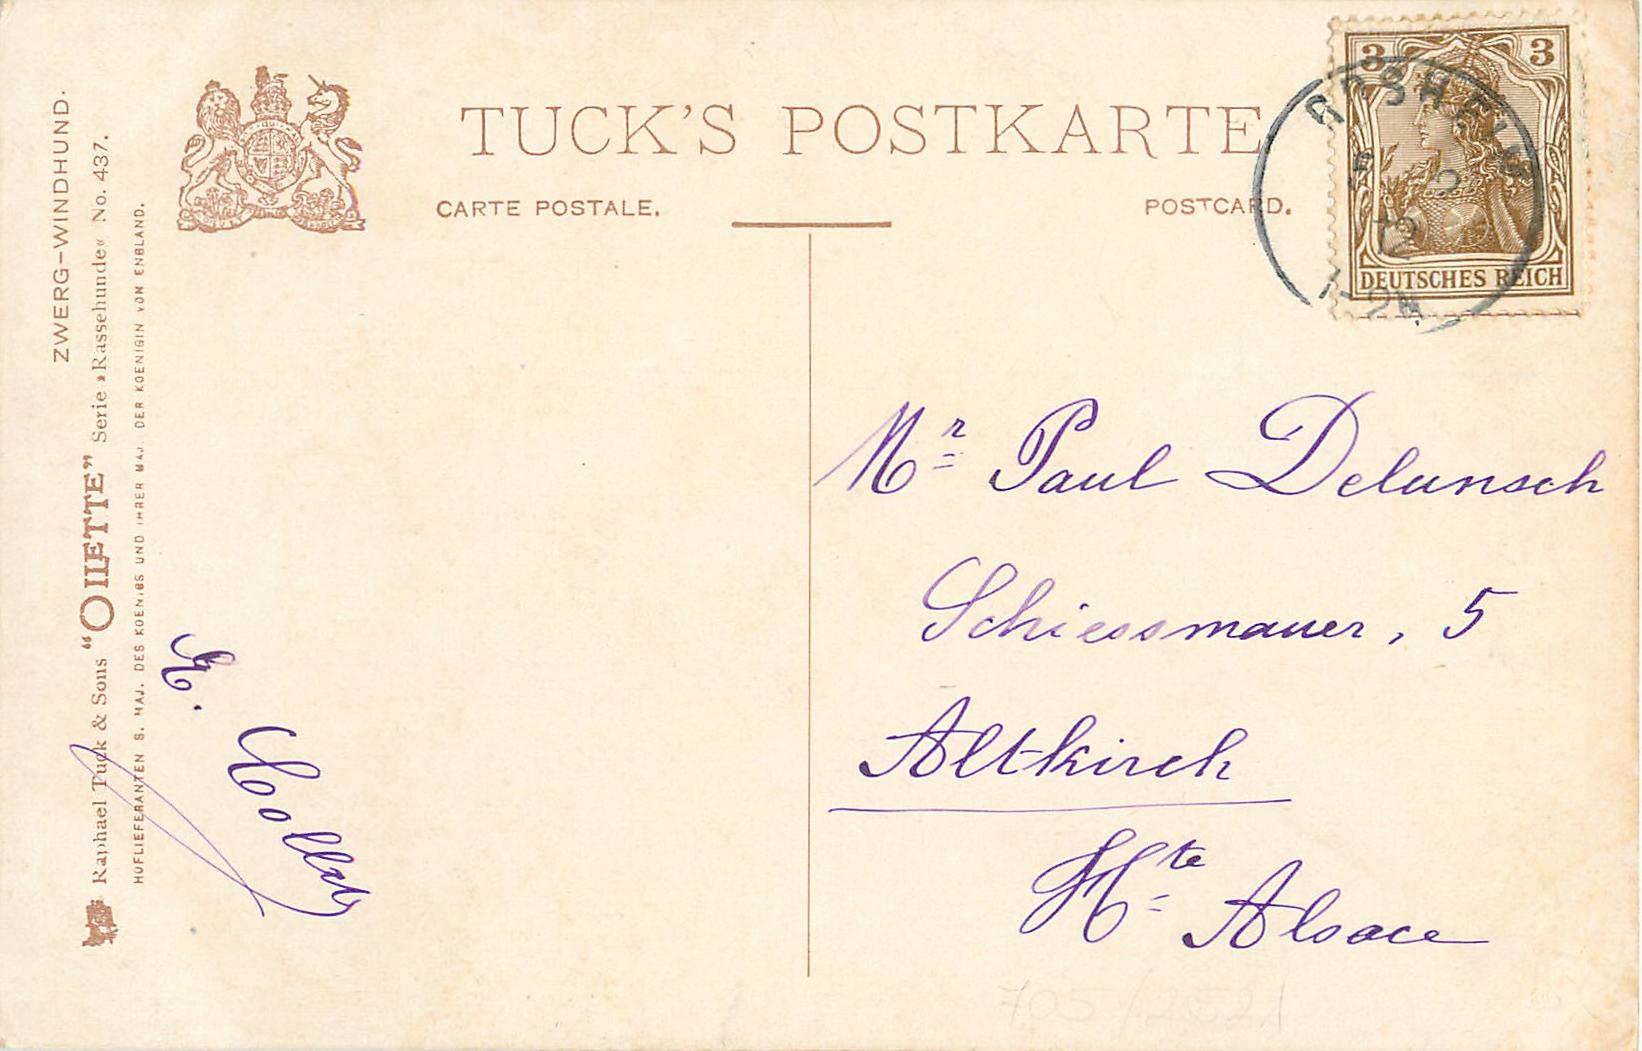 TUCK'S POSTKARTE
CARTE POSTALE.
POSTCARD.
3 3
DEUTSCHES REICH
ROSHEIM
ZWERG-WINDHUND.
Raphael Tuck & Sons "OILETTE" Serie »Rassehunde« No. 437.
HOFLIEFERANTEN S. MAJ. DES KOENIGS UND IHRER MAJ. DER KOENIGIN VON ENGLAND.
Mr Paul Delunsch
Schiessmauer, 5
Altkirch
Hte Alsace
705/2521